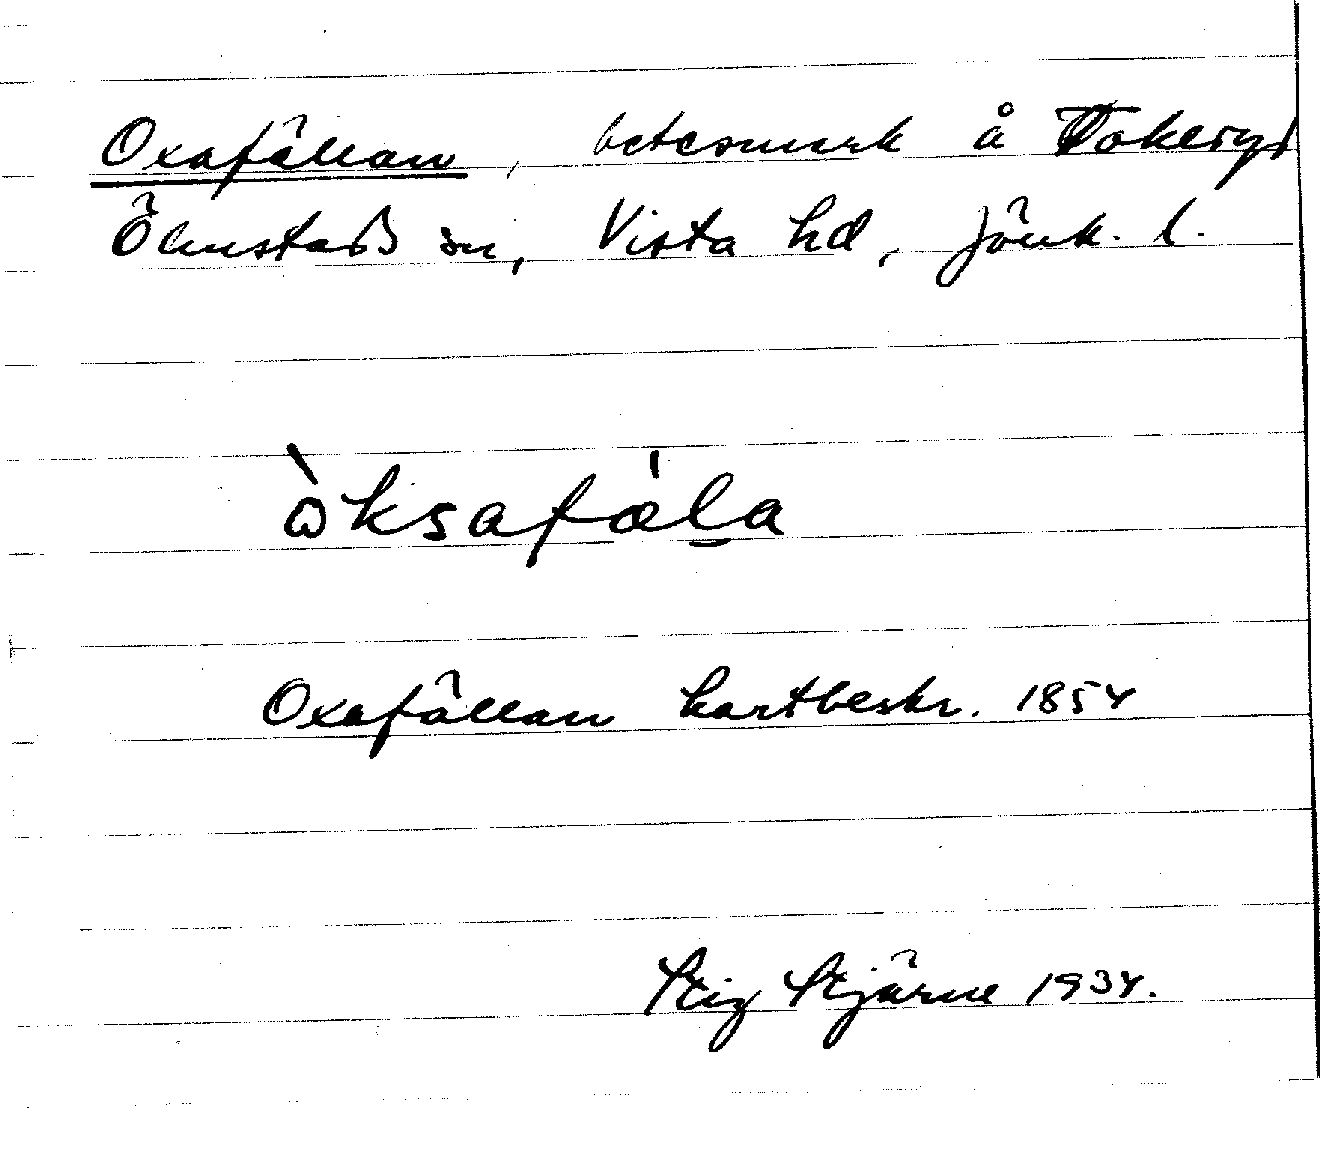 Oxafällan, betesmark å Tokeryd
Ölmstads sn, Vista hd, Jönk. l.
òksafæ̍l̲a
Oxafällan kartbeskr. 1854
Stig Stjärne 1934.